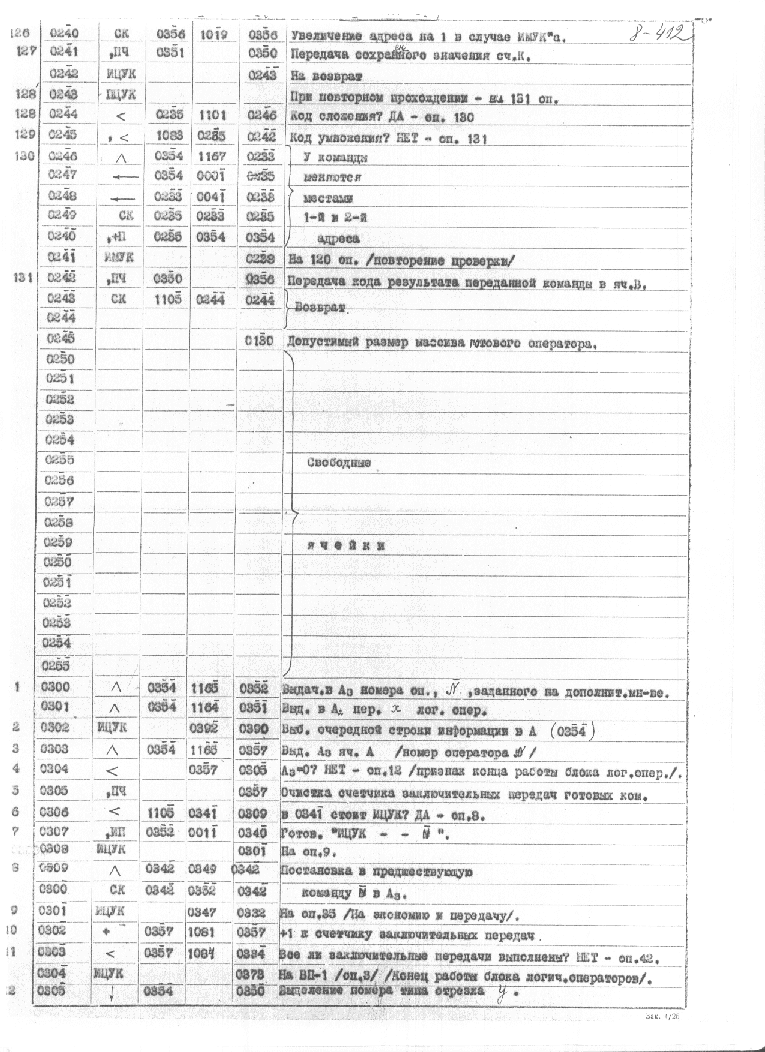 8-412
126 0240 СК 0356 1019 0356 Увеличение адреса на 1 в случае ИМУК"а.
127 0241 ,ПЧ 0351 0350 Передача сохраненного значения сч.К.
0242 ИЦУК 0243 На возврат
128 0243 ПЦУК При повторном прохождении - на 131 оп.
128 0244 < 0235 1101 0246 Код сложения? ДА - оп. 130
129 0245 , < 1083 0285 0242 Код умножения? НЕТ - оп. 131
130 0246 ∧ 0354 1167 0233 У команды
0247 ← 0354 0001 0235 меняются
0248 ← 0233 0041 0233 местами
0249 СК 0235 0233 0235 1-й и 2-й
0240 ,+П 0235 0354 0354 адреса
0241 ИМУК 0238 На 120 оп. /повторение проверки/
131 0242 ,ПЧ 0350 0356 Передача кода результата переданной команды в яч.В.
0243 СК 1105 0244 0244 Возврат.
0244
0245 0130 Допустимый размер массива готового оператора.
0250
0251
0252
0253
0254
0255 Свободные
0256
0257
0258
0259 ячейки
0250
0251
0252
0253
0254
0255
1 0300 ∧ 0354 1165 0352 Выдач.в А₃ номера оп., N̄ ,заданного на дополнит.мн-ве.
0301 ∧ 0354 1164 0351 Выд. в А₁ пер. x лог. опер.
2 0302 ИЦУК 0392 0390 Выб. очередной строки информации в А (0354)
3 0303 ∧ 0354 1165 0357 Выд. А₃ яч. А /номер оператора N/
4 0304 < 0357 0305 А₃=0? НЕТ - оп.12 /признак конца работы блока лог.опер./.
5 0305 ,ПЧ 0357 Очистка счетчика заключительных передач готовых ком.
6 0306 < 1105 0341 0309 в 0341 стоит ИЦУК? ДА - оп.8.
7 0307 ,ИП 0352 0011 0340 Готов. "ИЦУК - - N̄ ".
0308 ИЦУК 0301 На оп.9.
8 0309 ∧ 0342 0849 0342 Постановка в предшествующую
0300 СК 0342 0352 0342 команду N̄ в А₃.
9 0301 ИЦУК 0347 0332 На оп.35 /На экономию и передачу/.
10 0302 + 0357 1081 0357 +1 к счетчику заключительных передач.
11 0303 < 0357 1084 0334 Все ли заключительные передачи выполнены? НЕТ - оп.42.
0304 ИЦУК 0373 На ВП-1 /оп.3/ /Конец работы блока логич.операторов/.
0305 ↓ 0354 0350 Выделение номера типа отрезка y .